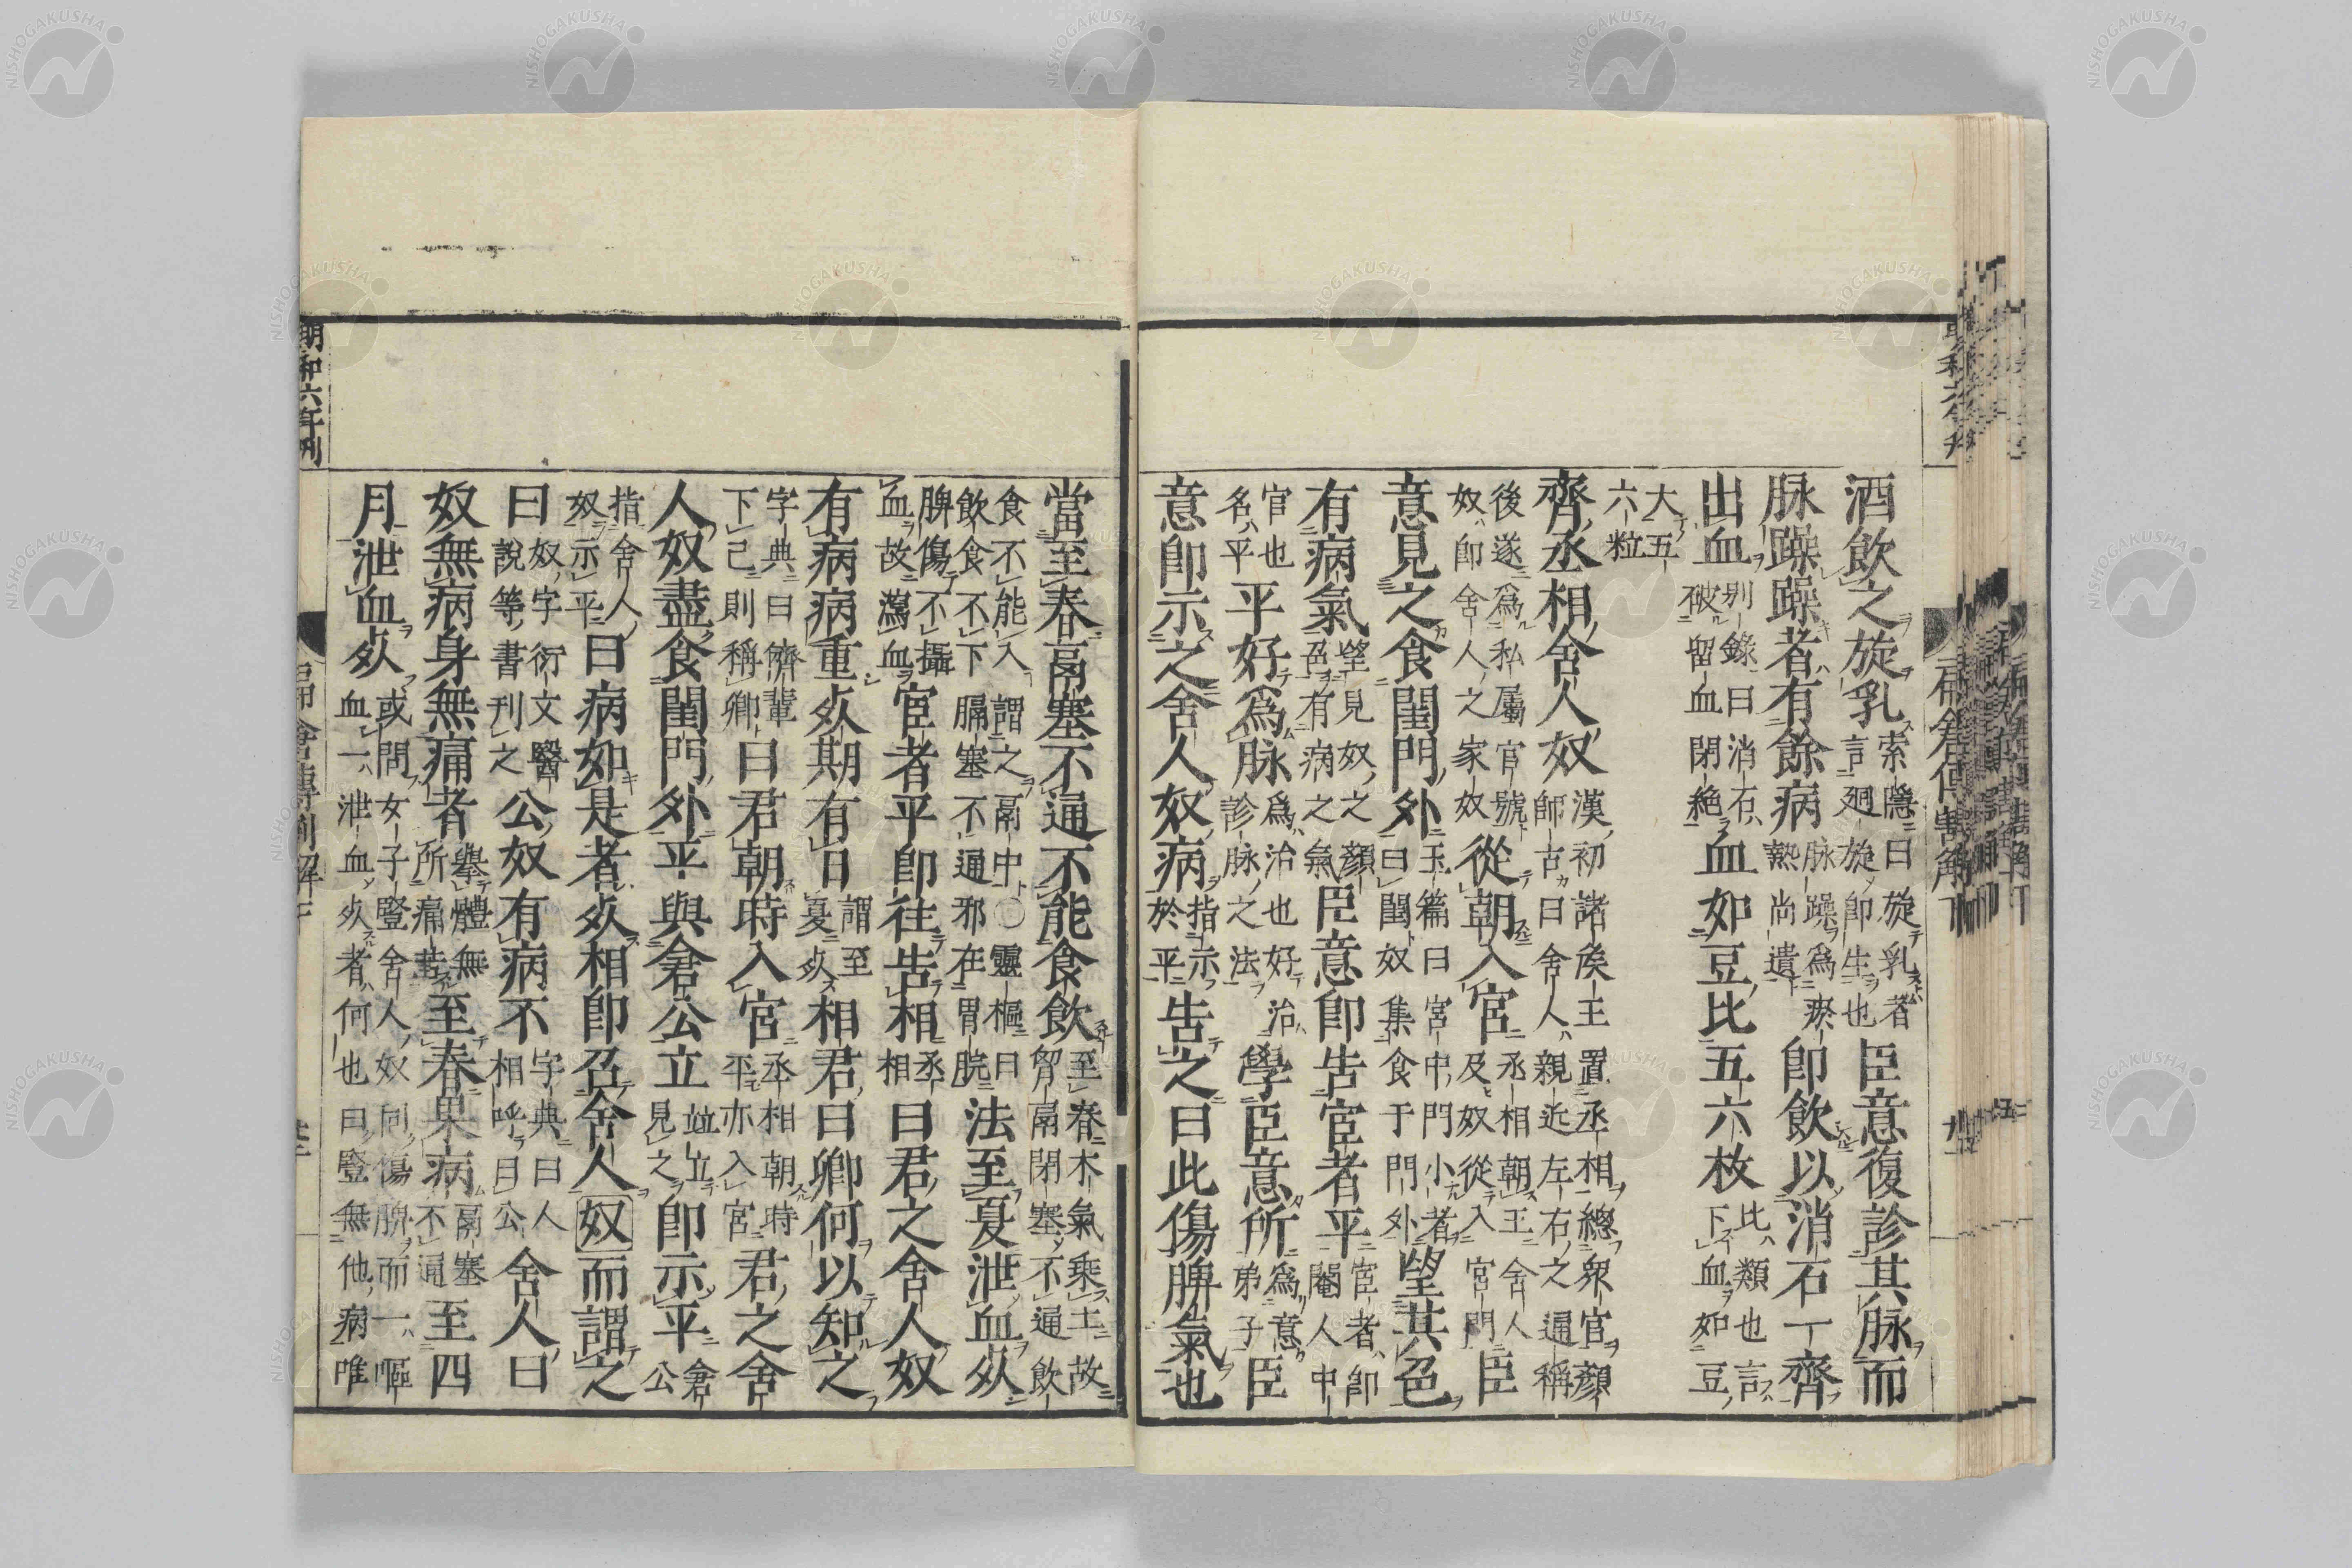 酒飲之旋乳索隱曰旋乳者言廻旋即生也臣意復診其脉而
脉躁躁者有餘病脉躁爲瘀熱尚遺即飲以消石一齊
出血別錄曰消石破留血閉絶血如豆比五六枚比類也言下血如豆
大五六粒
齊丞相舍人奴漢初諸侯王置丞相總衆官顏師古曰舍人親近左右之通稱
後遂爲私屬官號奴即舍人之家奴從朝入宮丞相朝王舍人及奴從入宮門臣
意見之食閨門外玉篇曰宮中門小者曰閨奴集食于門外望其色
有病氣望見奴之顏色有病之氣臣意即告宦者平宦者即閹人中
官也名平平好爲脉爲治也好治診脉之法學臣意所爲意弟子臣
意即示之舍人奴病指示於平告之曰此傷脾氣也
當至春鬲塞不通不能食飲至春木氣乘土故胃鬲閉塞不通飲
食不能入謂之鬲中○靈樞曰飲食不下膈塞不通邪在胃脘法至夏泄血死
脾傷不攝血故瀉血宦者平即往告相丞相曰君之舍人奴
有病病重死期有日謂至夏死相君曰卿何以知之
字典曰儕輩下己則稱卿曰君朝時入宮丞相朝時平亦入宮君之舍
人奴盡食閨門外平與倉公立竝立見之即示平倉公
指舍人奴示平曰病如是者死相即召舍人奴而謂之
曰奴字衍文醫說等書刊之公奴有病不字典曰人相呼曰公舍人曰
奴無病身無痛者擧體無所痛苦至春果病鬲塞不通至四
月泄血死或問女子豎舍人奴同傷脾而一嘔血一泄血死者何也曰豎無他病唯
明和六年刊